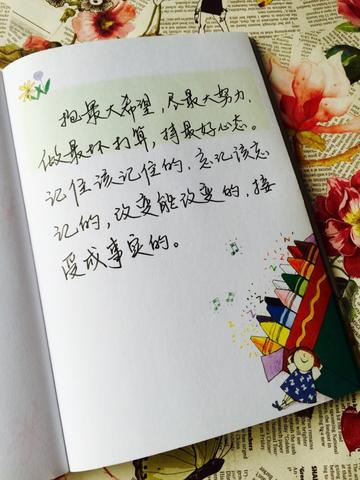 抱最大希望，尽最大努力，
做最坏打算，持最好心态。
记住该记住的，忘记该忘
记的，改变能改变的，接
受成事实的。